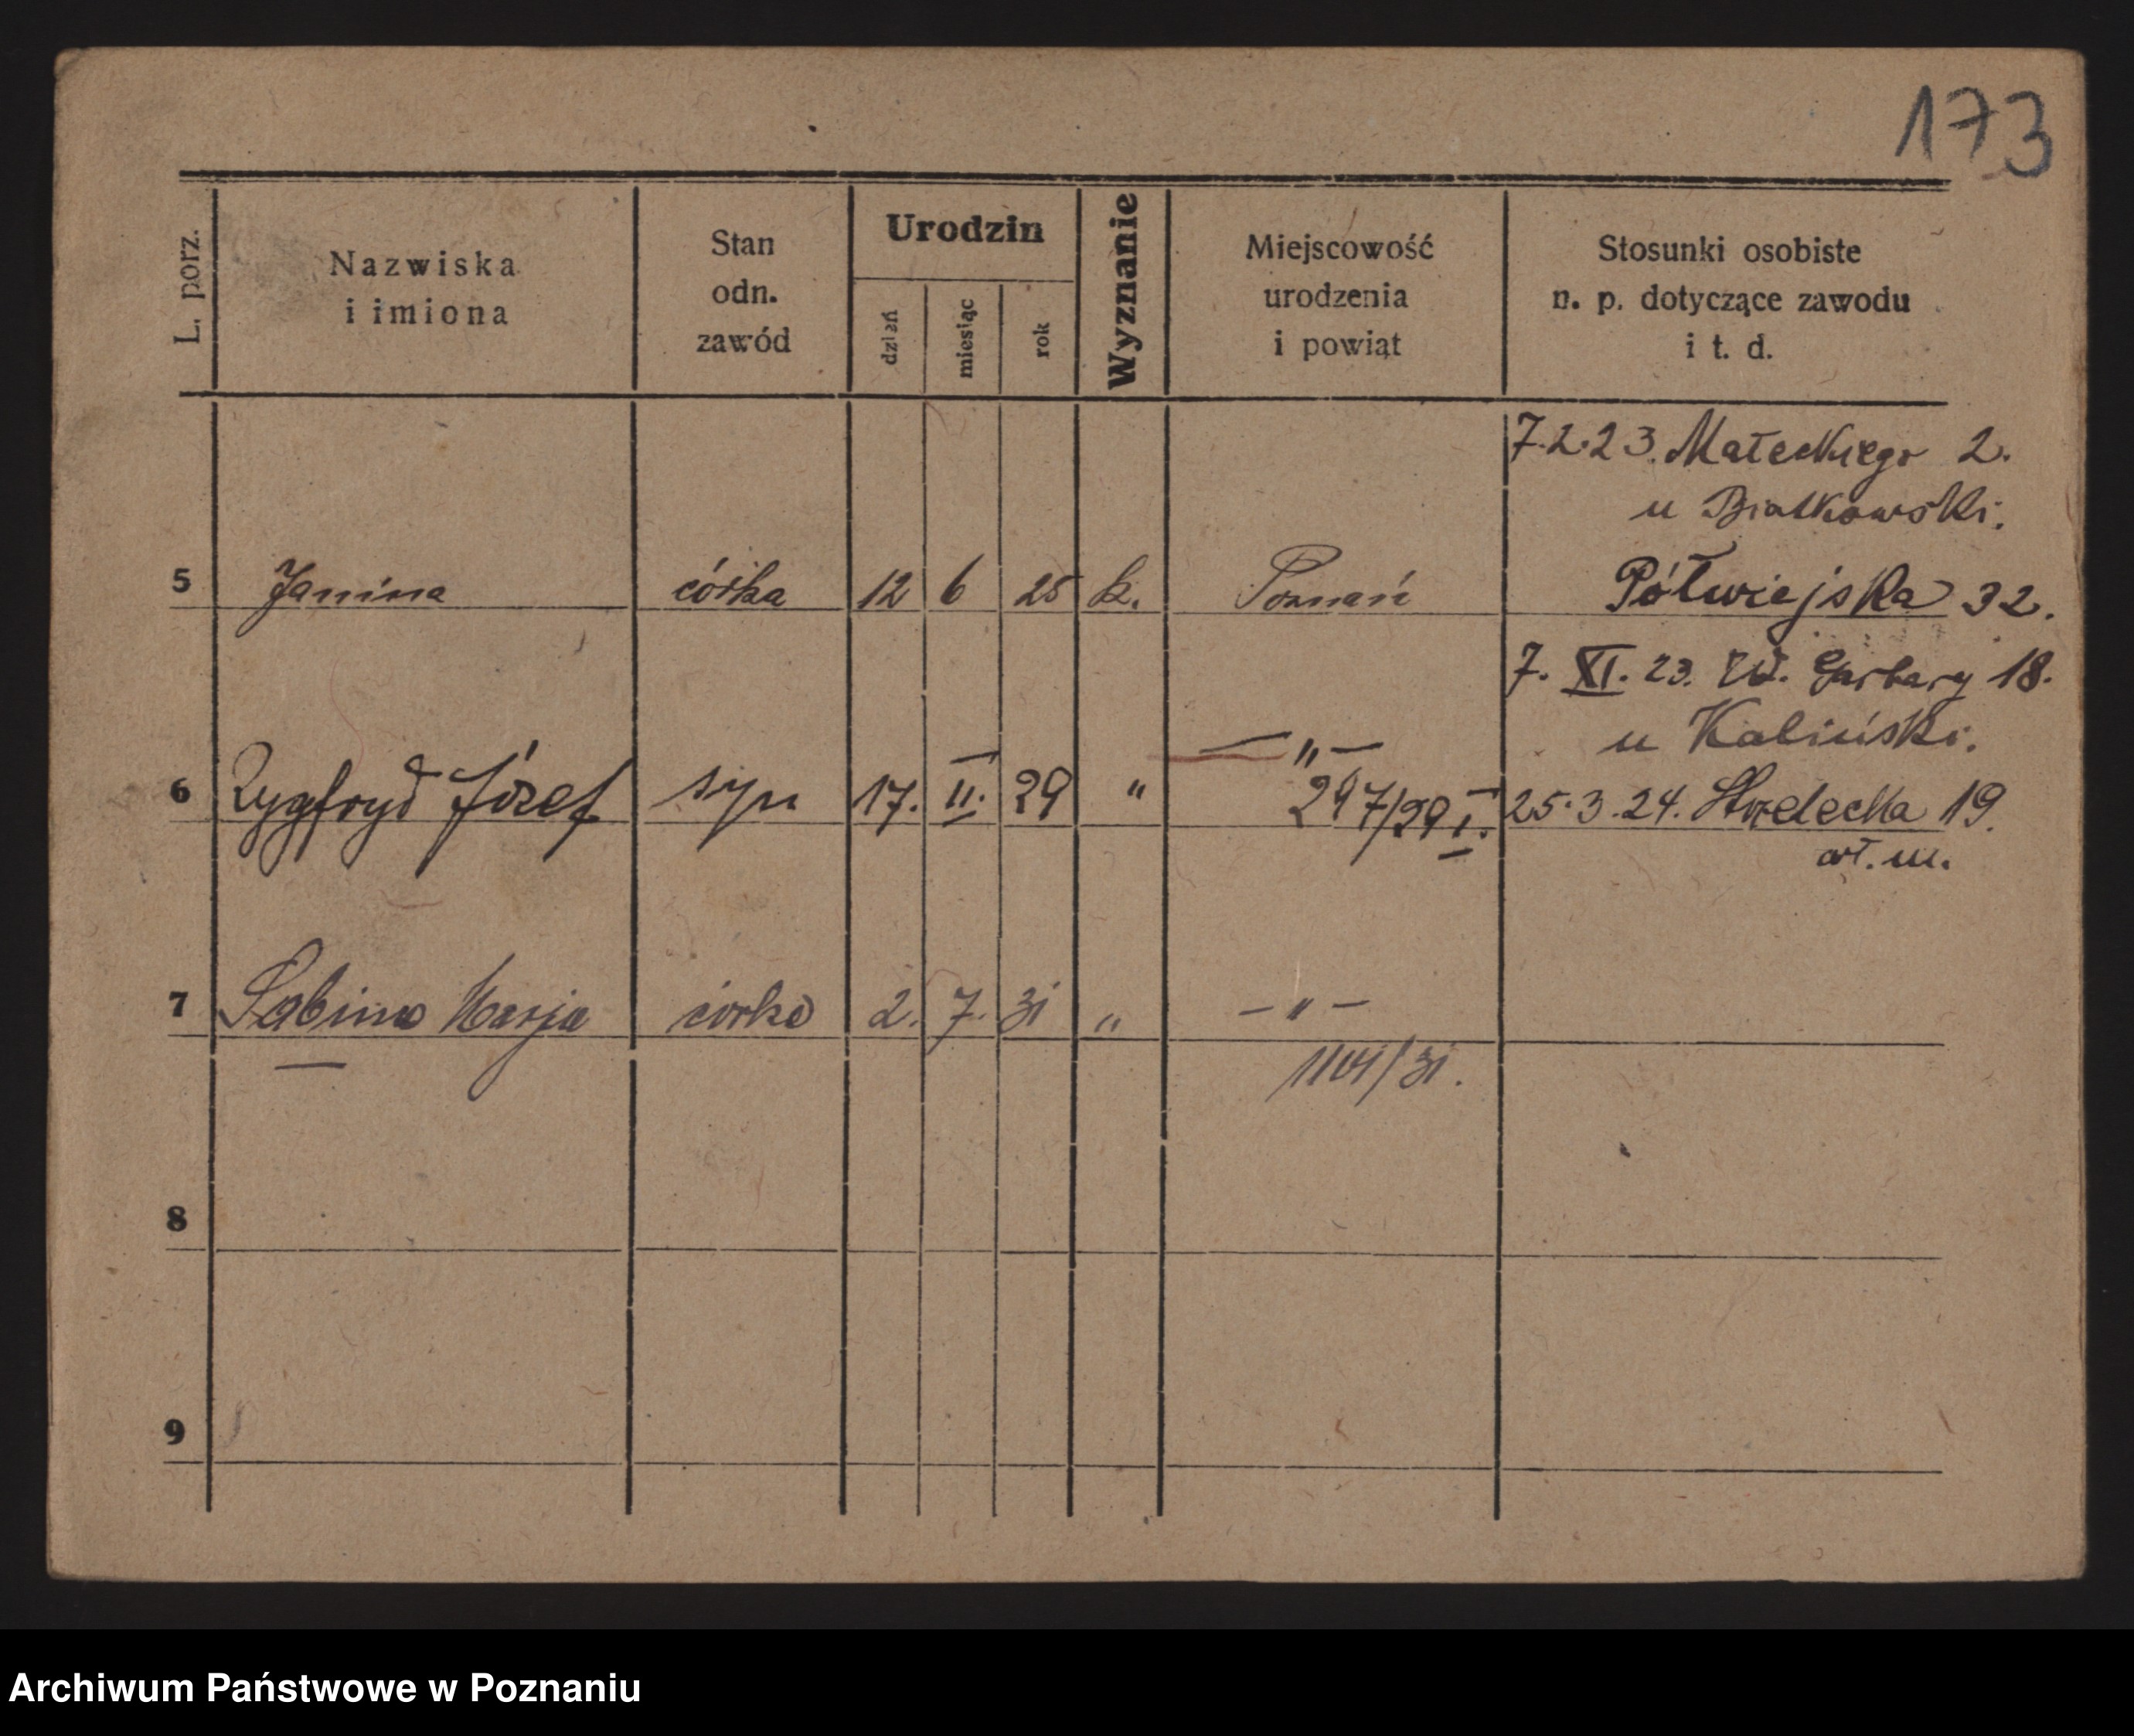 173
L. porz.
Nazwiska
i imiona
Stan
odn.
zawód
Urodzin
dzień
miesiąc
rok
Wyznanie
Miejscowość
urodzenia
i powiąt
Stosunki osobiste
n. p. dotyczące zawodu
i t. d.
7.2.23. Małeckiego 2.
u Białkowski.
5 Janina córka 12 6 25 k. Poznań Półwiejska 32.
7. XI. 23. W. Garbary 18.
u Kaliński.
— „ —
6 Zygfryd Józef syn 17. II. 29 „ 297/29 I. 25.3.24. Strzelecka 19.
wł. m.
7 Sabina Marja córka 2. 7. 31 „ — „ —
/31.
8
9
Archiwum Państwowe w Poznaniu